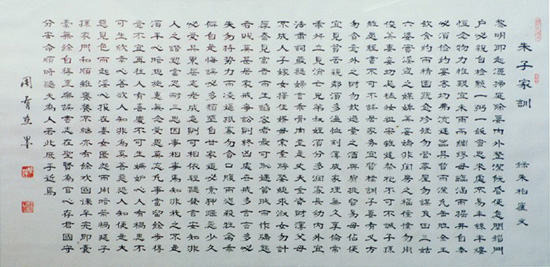 朱子家訓
錄朱柏廬文
黎明即起灑掃庭除要內外整潔既昏便息關鎖門
戶必親自檢點一粥一飯當思來處不易半絲半縷
恆念物力維艱宜未雨而綢繆毋臨渴而掘井自奉
必須儉約宴客切勿流連器具質而潔瓦缶勝金玉
飲食約而精園蔬愈珍饈勿營華屋勿謀良田三姑
六婆實淫盜之媒婢美妾嬌非閨房之福童僕勿用
俊美妻妾切忌豔妝祖宗雖遠祭祀不可不誠子孫
雖愚經書不可不讀居身務期質樸教子要有義方
勿貪意外之財勿飲過量之酒與肩挑貿易毋佔便
宜見貧苦親鄰須多溫恤刻薄成家理無久享倫常
乖舛立見消亡兄弟叔姪須分多潤寡長幼內外宜
法肅辭嚴聽婦言乖骨肉豈是丈夫重資財薄父母
不成人子嫁女擇佳婿毋索重聘娶媳求淑女勿計
厚奩見富貴而生諂容者最可恥遇貧窮而作驕態
者賤莫甚居家戒爭訟訟則終凶處世戒多言言多必
失勿恃勢力而凌逼孤寡勿貪口腹而恣殺牲禽乖
僻自是悔誤必多頹惰自甘家道難成狎暱惡少久
必受其累屈志老成急則可相依輕聽發言安知非
人之譖愬當忍耐三思因事相爭焉知非我之不是
須平心暗想施惠無念受恩莫忘凡事當留餘地得
意不宜再往人有喜慶不可生妒忌心人有禍患不
可生欣幸心善欲人見不是真善惡恐人知便是大
惡見色而起淫心報在妻女匿怨而用暗箭禍延子
孫家門和順雖饔飧不繼亦有餘歡國課早完即囊
橐無餘自得至樂讀書志在聖賢為官心存君國守
分安命順時聽天為人若此庶乎近焉
周